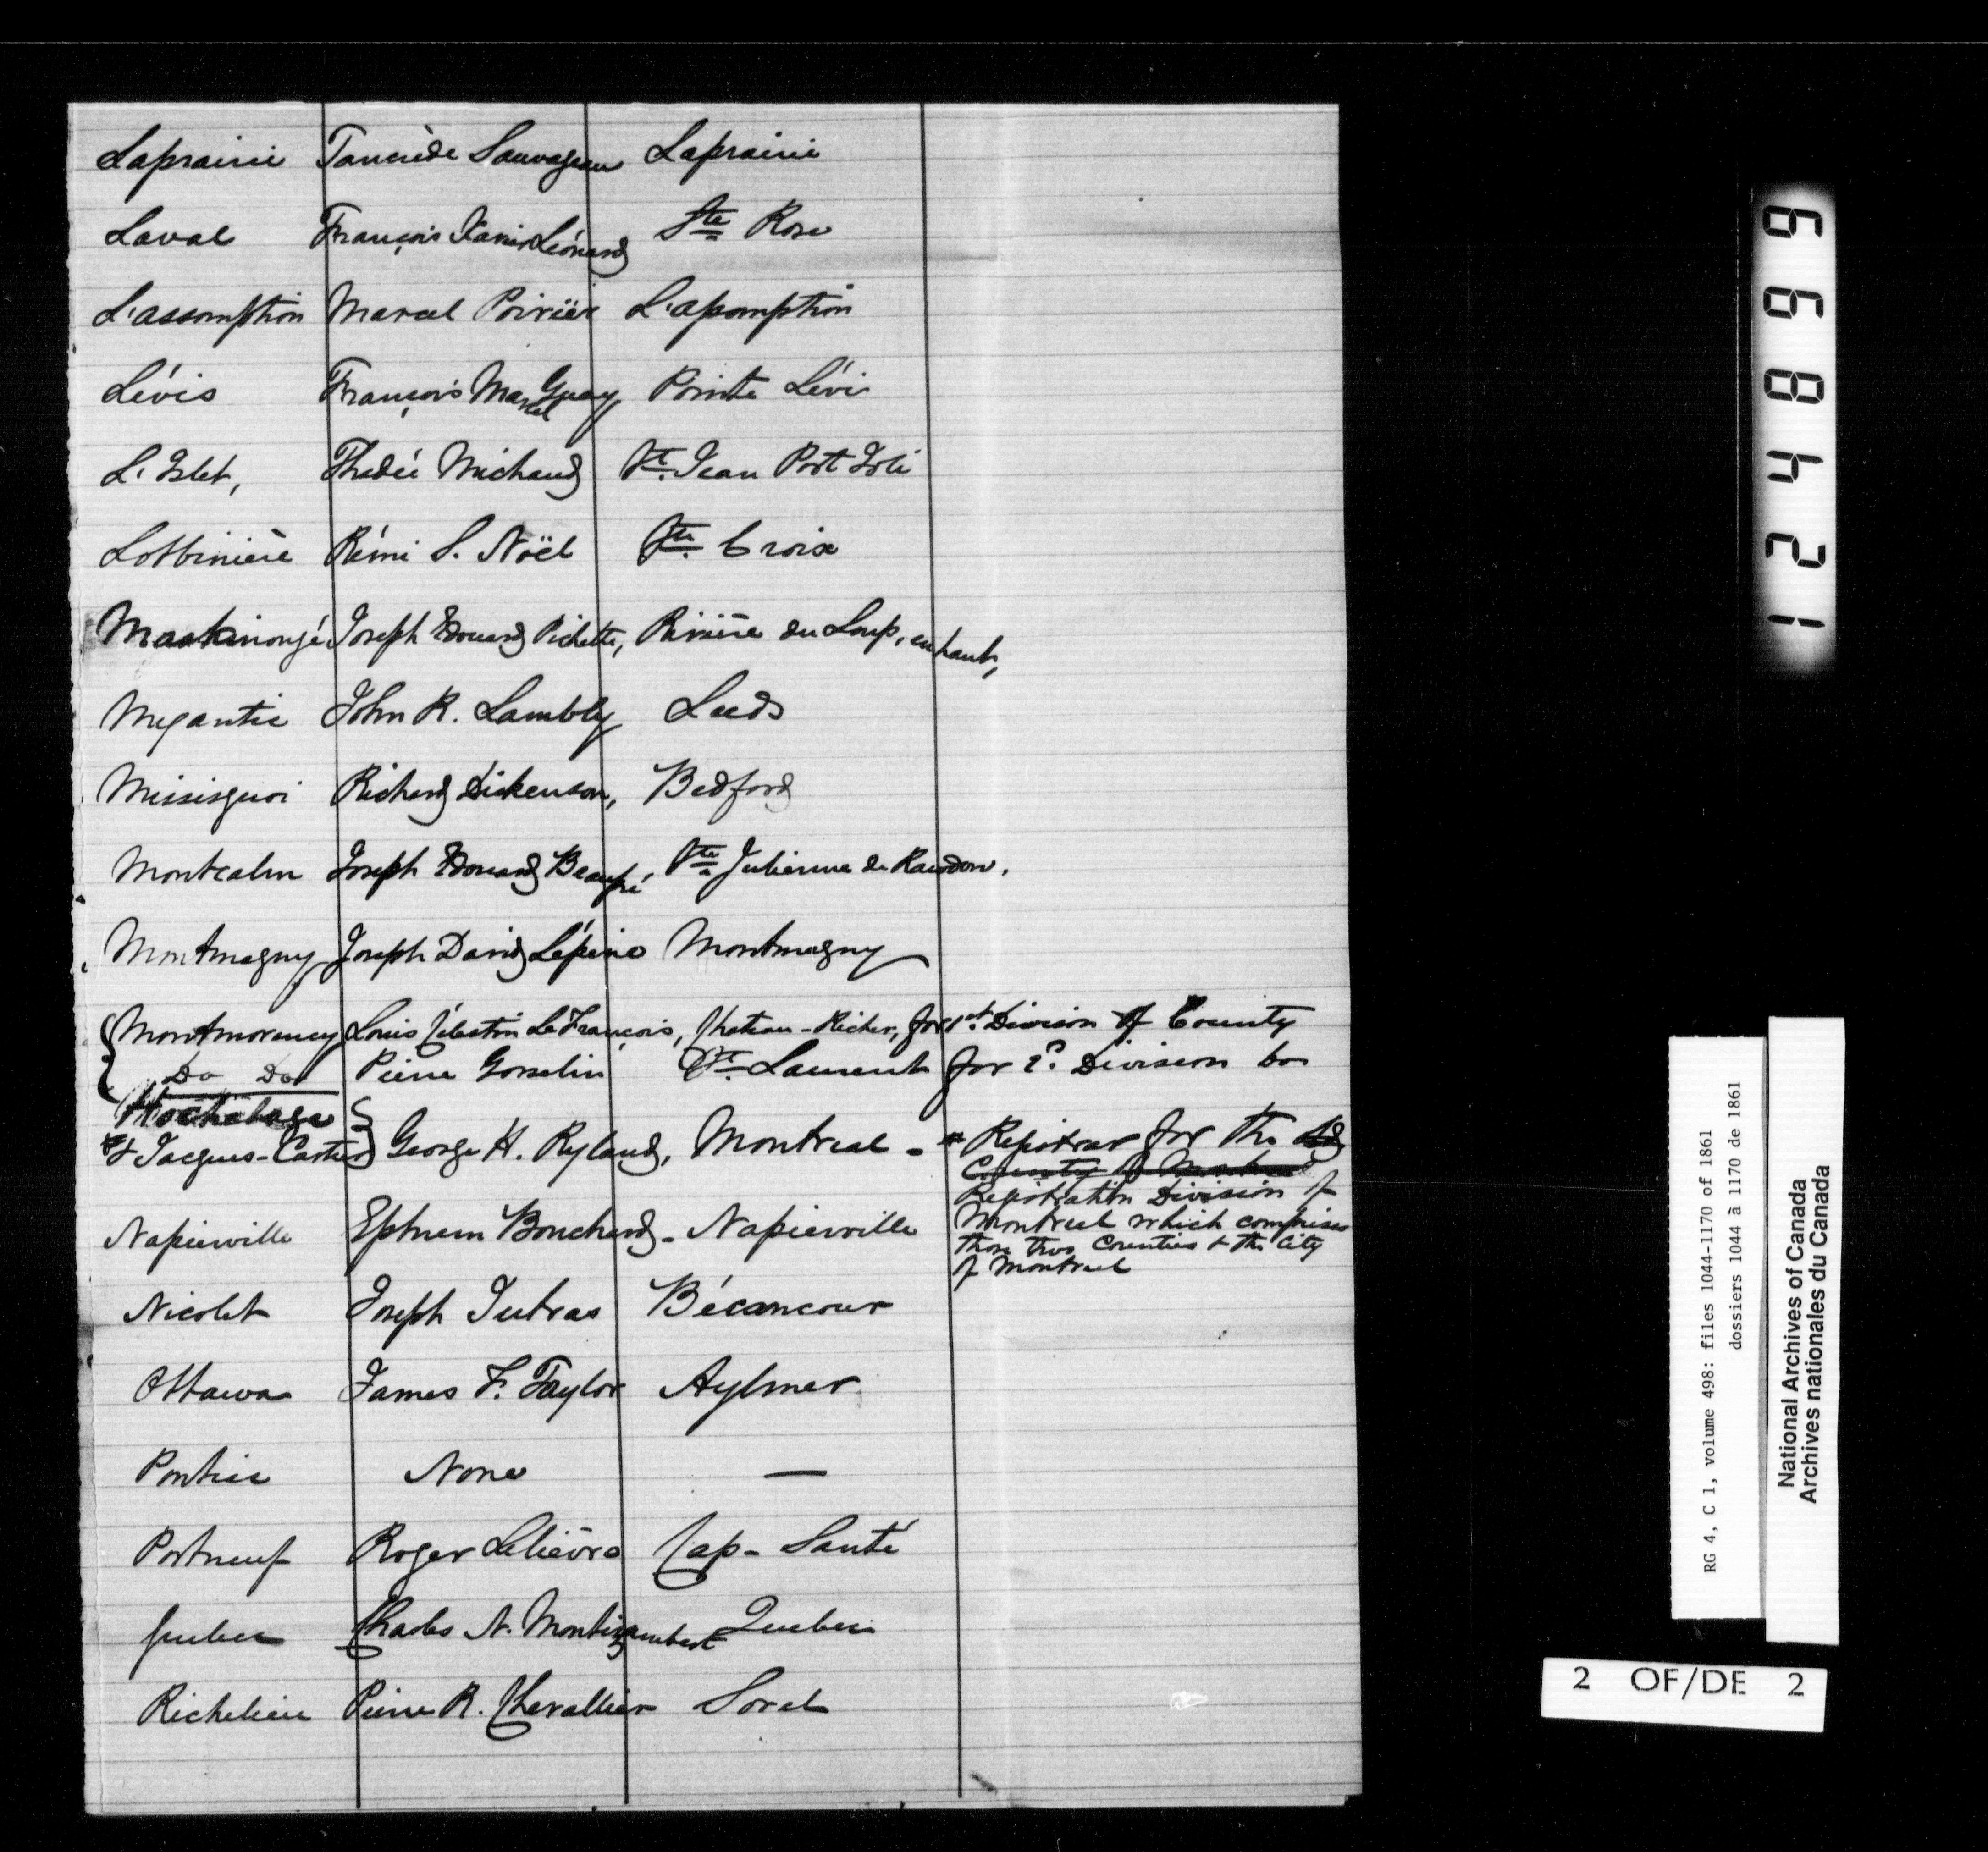 Laprairie Tancrède Sauvageau Laprairie
Laval François Xavier Léonard Ste Rose
L'assomption Marcel Poirier L'assomption
Lévis François Marcel Guay Pointe Lévi
L'Islet, Thadée Michaud St. Jean Port Joli
Lotbinière Rémi S. Noël Ste. Croix
Maskinongé Joseph Edouard Pichette, Rivière du Loup, en haut,
Megantic John R. Lambly Leeds
Missisquoi Richard Dickenson, Bedford
Montcalm Joseph Edouard Beaupré Ste Julienne de Rawdon.
Montmagny Joseph David Lépine Montmagny
Montmorency Louis Célestin LeFrançois, Chateau-Richer, for 1st Division of County
Do Do Pierre Gosselin St. Laurent for 2d. Division
Hochelaga
& Jacques-Cartier George H. Ryland, Montreal - * Registrar for the
County of Montreal
Registration Division of
Napierville Ephrem Bouchard - Napierville Montreal which comprises
those two Counties & the City
of Montreal
Nicolet Joseph Jutras Bécancour
Ottawa James F. Taylor Aylmer
Pontiac None —
Portneuf Roger Lelièvre Cap-Santé
Quebec Charles N. Montizambert Quebec
Richelieu Pierre R. Chevallier Sorel
1 2 4 8 6 6 9
RG 4, C 1, volume 498: files 1044-1170 of 1861
dossiers 1044 à 1170 de 1861
National Archives of Canada
Archives nationales du Canada
2 OF/DE 2